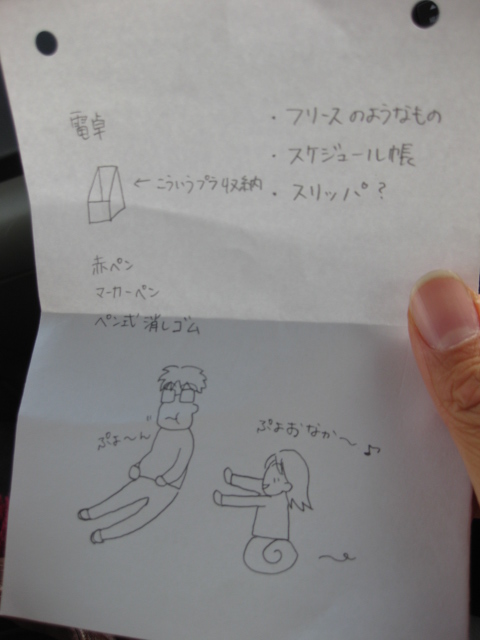 電卓
←こういうプラ収納
赤ペン
マーカーペン
ペン式消しゴム
・フリースのようなもの
・スケジュール帳
・スリッパ?
ぷよ〜ん
ぷよおなか〜♪